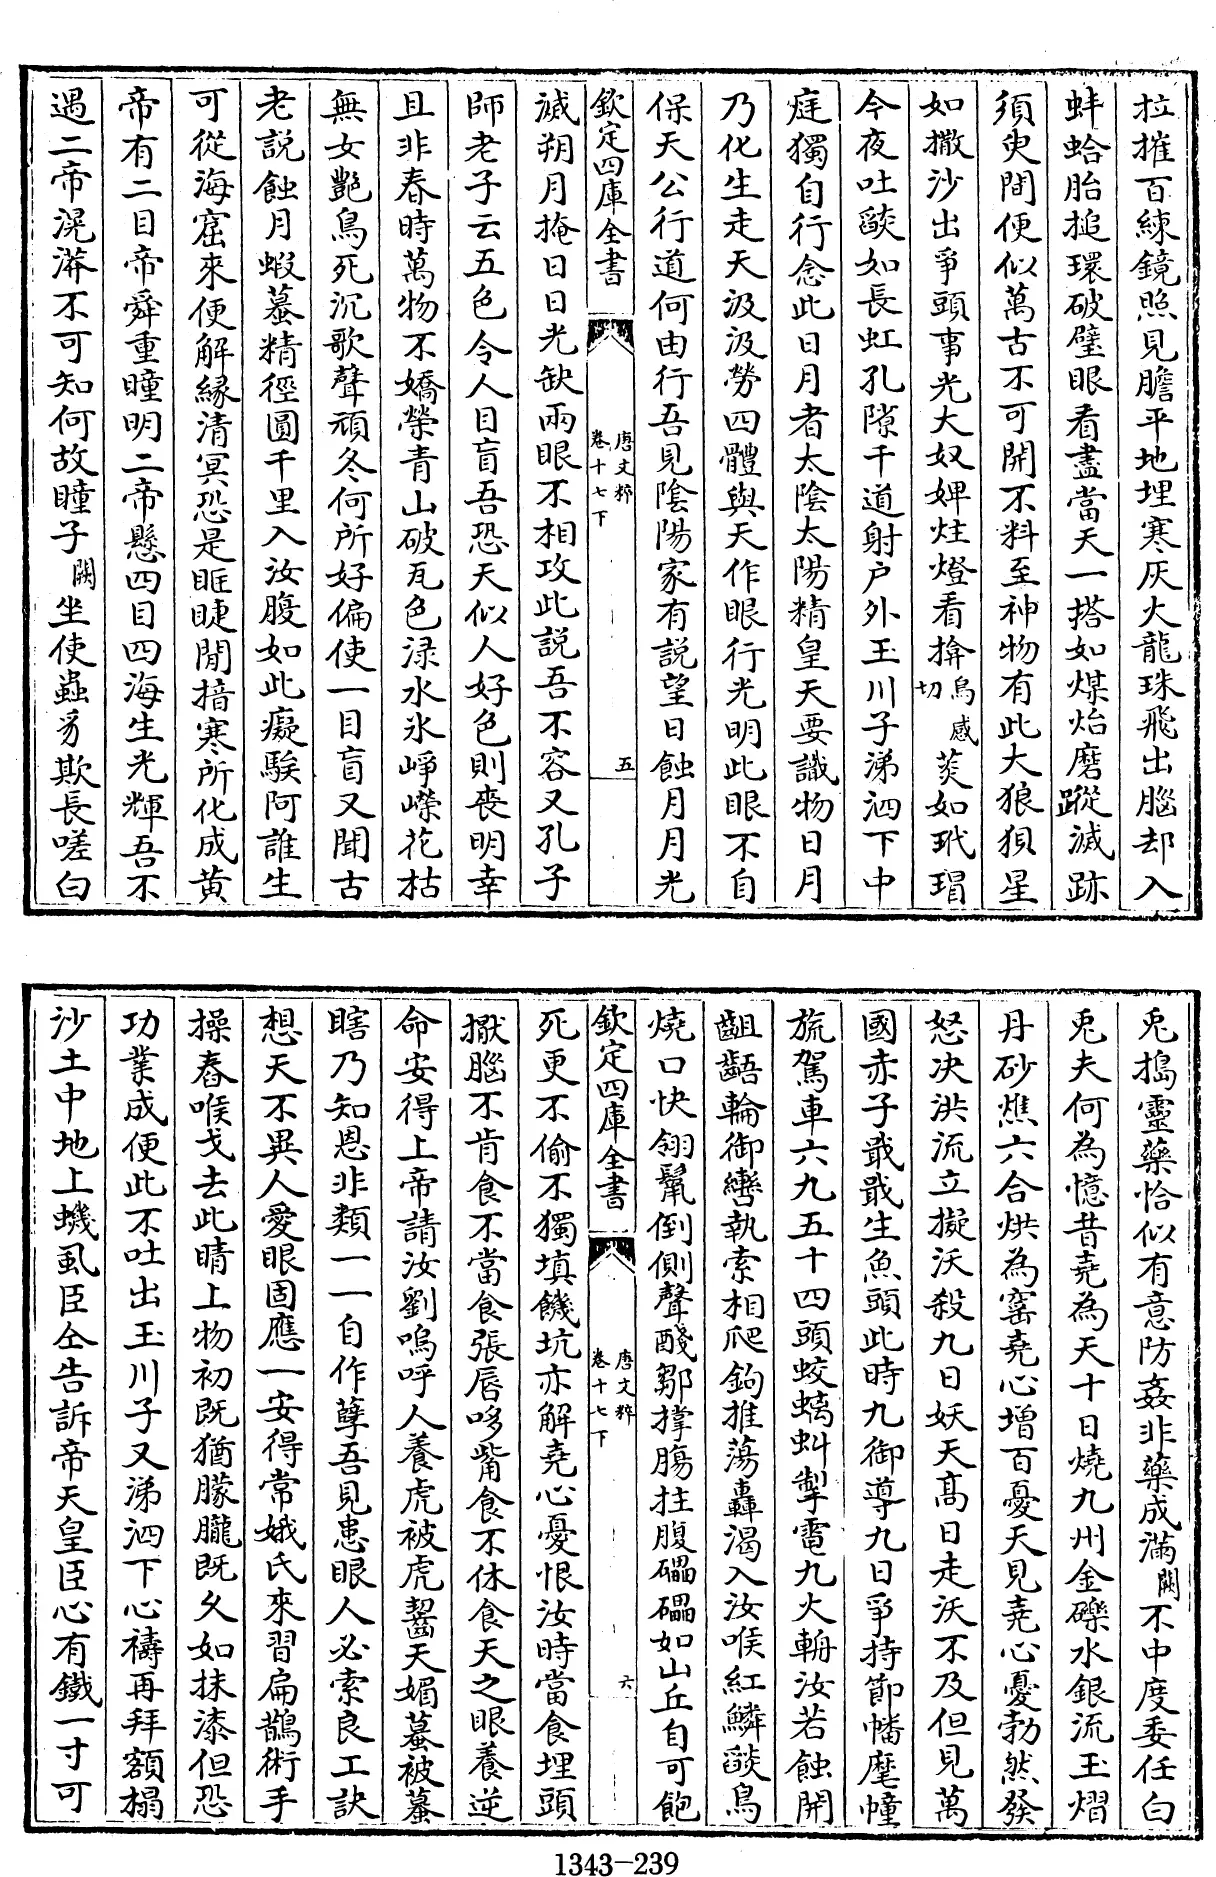 拉摧百練鏡照見膽平地埋寒灰火龍珠飛出腦却入
蚌蛤胎摧環破璧眼看盡當天一搭如煤炲磨蹤滅跡
須臾間便似萬古不可開不料至神物有此大狼狽星
如撒沙出爭頭事光大奴婢炷燈看揜烏感切菼如玳瑁
今夜吐燄如長虹孔隙千道射戸外玉川子涕泗下中
庭獨自行念此日月者太陰太陽精皇天要識物日月
乃化生走天汲汲勞四體與天作眼行光明此眼不自
保天公行道何由行吾見陰陽家有説望日蝕月月光
欽定四庫全書
唐文粹
卷十七下
五
滅朔月掩日日光缺兩眼不相攻此説吾不容又孔子
師老子云五色令人目盲吾恐天似人好色則喪明幸
且非春時萬物不嬌榮青山破瓦色渌水氷崢嶸花枯
無女艶鳥死沉歌聲頑冬何所好偏使一目盲又聞古
老説蝕月蝦蟇精徑圓千里入汝腹如此癡騃阿誰生
可從海窟來便解緣清冥恐是眶睫閒揞寒所化成黄
帝有二目帝舜重瞳明二帝懸四目四海生光輝吾不
遇二帝滉漭不可知何故瞳子闕坐使蟲豸欺長嗟白
兎搗靈藥恰似有意防姦非藥成滿闕不中度委任白
兎夫何為憶昔堯為天十日燒九州金礫水銀流玉熠
丹砂燋六合烘為窰堯心增百憂天見堯心憂勃然發
怒决洪流立擬沃殺九日妖天髙日走沃不及但見萬
國赤子戢戢生魚頭此時九御導九日爭持節幡麾幢
旒駕車六九五十四頭蛟螭虯掣電九火輈汝若蝕開
齟齬輪御轡執索相爬鉤推蕩轟渴入汝喉紅鱗燄鳥
燒口快翎鬣倒側聲醆鄒撑膓拄腹礧磈如山丘自可飽
欽定四庫全書
唐文粹
卷十七下
六
死更不偷不獨填饑坑亦解堯心憂恨汝時當食埋頭
擫腦不肯食不當食張唇哆觜食不休食天之眼養逆
命安得上帝請汝劉嗚呼人養虎被虎齧天媚蟇被蟇
瞎乃知恩非類一一自作孽吾見患眼人必索良工訣
想天不異人愛眼固應一安得常娥氏來習扁鵲術手
操舂喉戈去此睛上物初既猶朦朧既久如抹漆但恐
功業成便此不吐出玉川子又涕泗下心禱再拜額搨
沙土中地上蟣虱臣仝告訴帝天皇臣心有鐵一寸可
1343-239